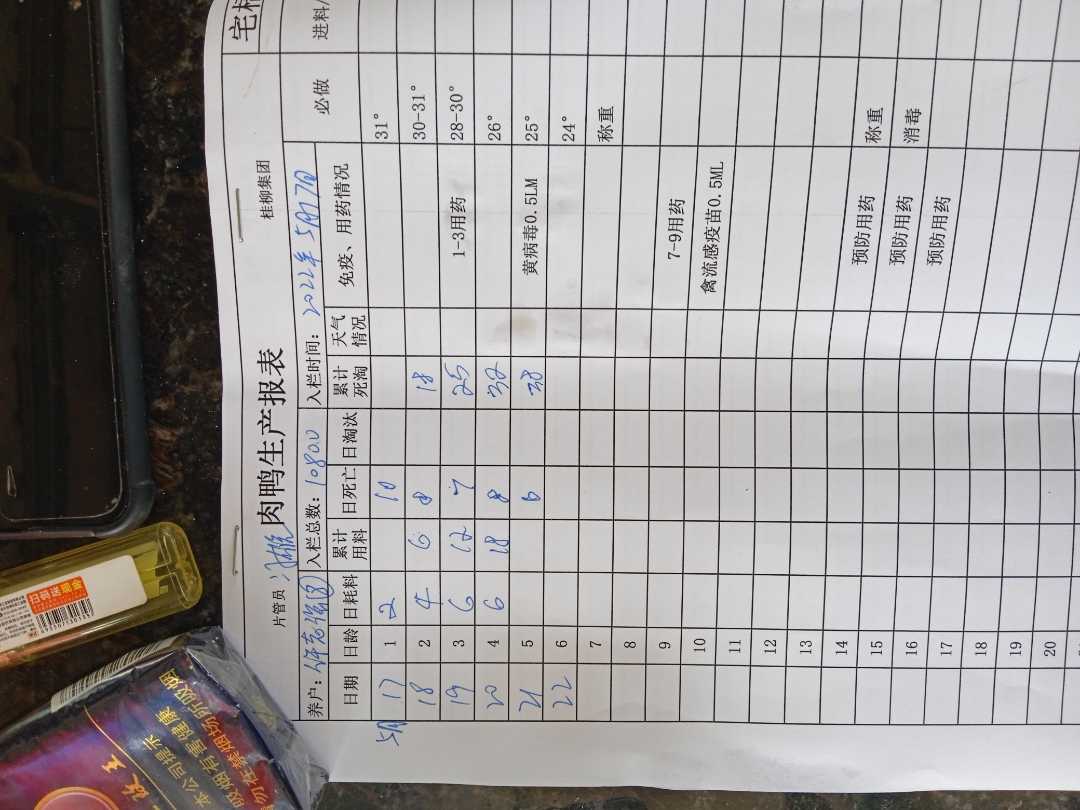 宅
桂柳集团
片管员 肉鸭生产报表
养户: 入栏总数: 10800 入栏时间: 2022年5月17日
日期 日龄 日耗料 累计用料 日死亡 日淘汰 累计死淘 天气情况 免疫、用药情况 必做 进料/
5月 17 1 2 10 31°
18 2 4 6 8 18 30-31°
19 3 6 12 7 25 1-3用药 28-30°
20 4 6 18 8 32 26°
21 5 6 38 黄病毒0.5LM 25°
22 6 24°
7 称重
8
9 7-9用药
10 禽流感疫苗0.5ML
11
12
13
14 预防用药
15 预防用药 称重
16 预防用药 消毒
17
18
19
20
扫码送现金
本公司提示
吸烟有害健康
勿在禁烟场所吸烟